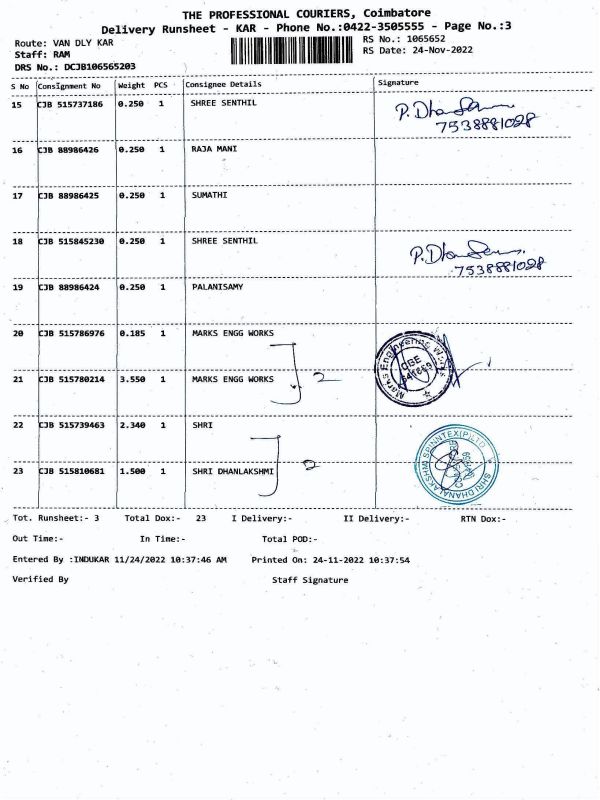 THE PROFESSIONAL COURIERS, Coimbatore
Delivery Runsheet - KAR - Phone No.:0422-3505555 - Page No.:3
Route: VAN DLY KAR
RS No.: 1065652
Staff: RAM
RS Date: 24-Nov-2022
DRS No.: DCJB106565203
S No Consignment No Weight PCS Consignee Details Signature
15 CJB 515737186 0.250 1 SHREE SENTHIL
7538881028
16 CJB 88986426 0.250 1 RAJA MANI
17 CJB 88986425 0.250 1 SUMATHI
18 CJB 515845230 0.250 1 SHREE SENTHIL
7538881028
19 CJB 88986424 0.250 1 PALANISAMY
20 CJB 515786976 0.185 1 MARKS ENGG WORKS
Marks Engineering Works
CBE
21 CJB 515780214 3.550 1 MARKS ENGG WORKS
2
22 CJB 515739463 2.340 1 SHRI
23 CJB 515810681 1.500 1 SHRI DHANLAKSHMI
2
SHRI DHANALAKSHMI SPINNTEX(P)LTD
Tot. Runsheet:- 3 Total Dox:- 23 I Delivery:- II Delivery:- RTN Dox:-
Out Time:- In Time:- Total POD:-
Entered By :INDUKAR 11/24/2022 10:37:46 AM Printed On: 24-11-2022 10:37:54
Verified By Staff Signature